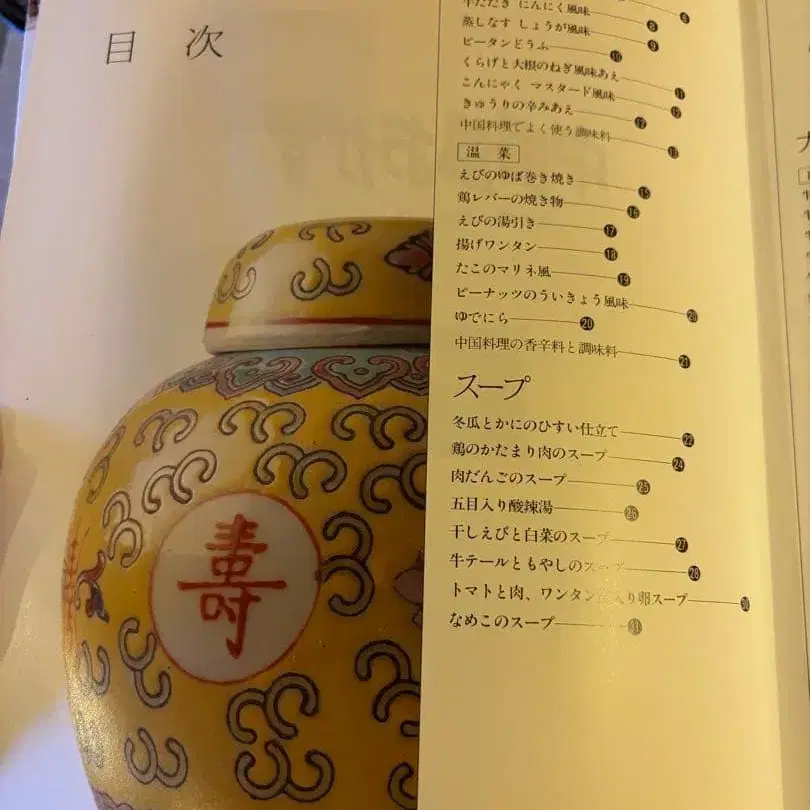 目次
牛たたき にんにく風味 8
蒸しなす しょうが風味 9
ピータンどうふ 10
くらげと大根のねぎ風味あえ 11
こんにゃく マスタード風味 12
きゅうりの辛みあえ 12
中国料理でよく使う調味料 13
温菜
えびのゆば巻き焼き 15
鶏レバーの焼き物 16
えびの湯引き 17
揚げワンタン 18
たこのマリネ風 19
ピーナッツのういきょう風味 20
ゆでにら 20
中国料理の香辛料と調味料 21
スープ
冬瓜とかにのひすい仕立て 22
鶏のかたまり肉のスープ 24
肉だんごのスープ 25
五目入り酸辣湯 26
干しえびと白菜のスープ 27
牛テールともやしのスープ 28
トマトと肉、ワンタン皮入り卵スープ 30
なめこのスープ 31
壽